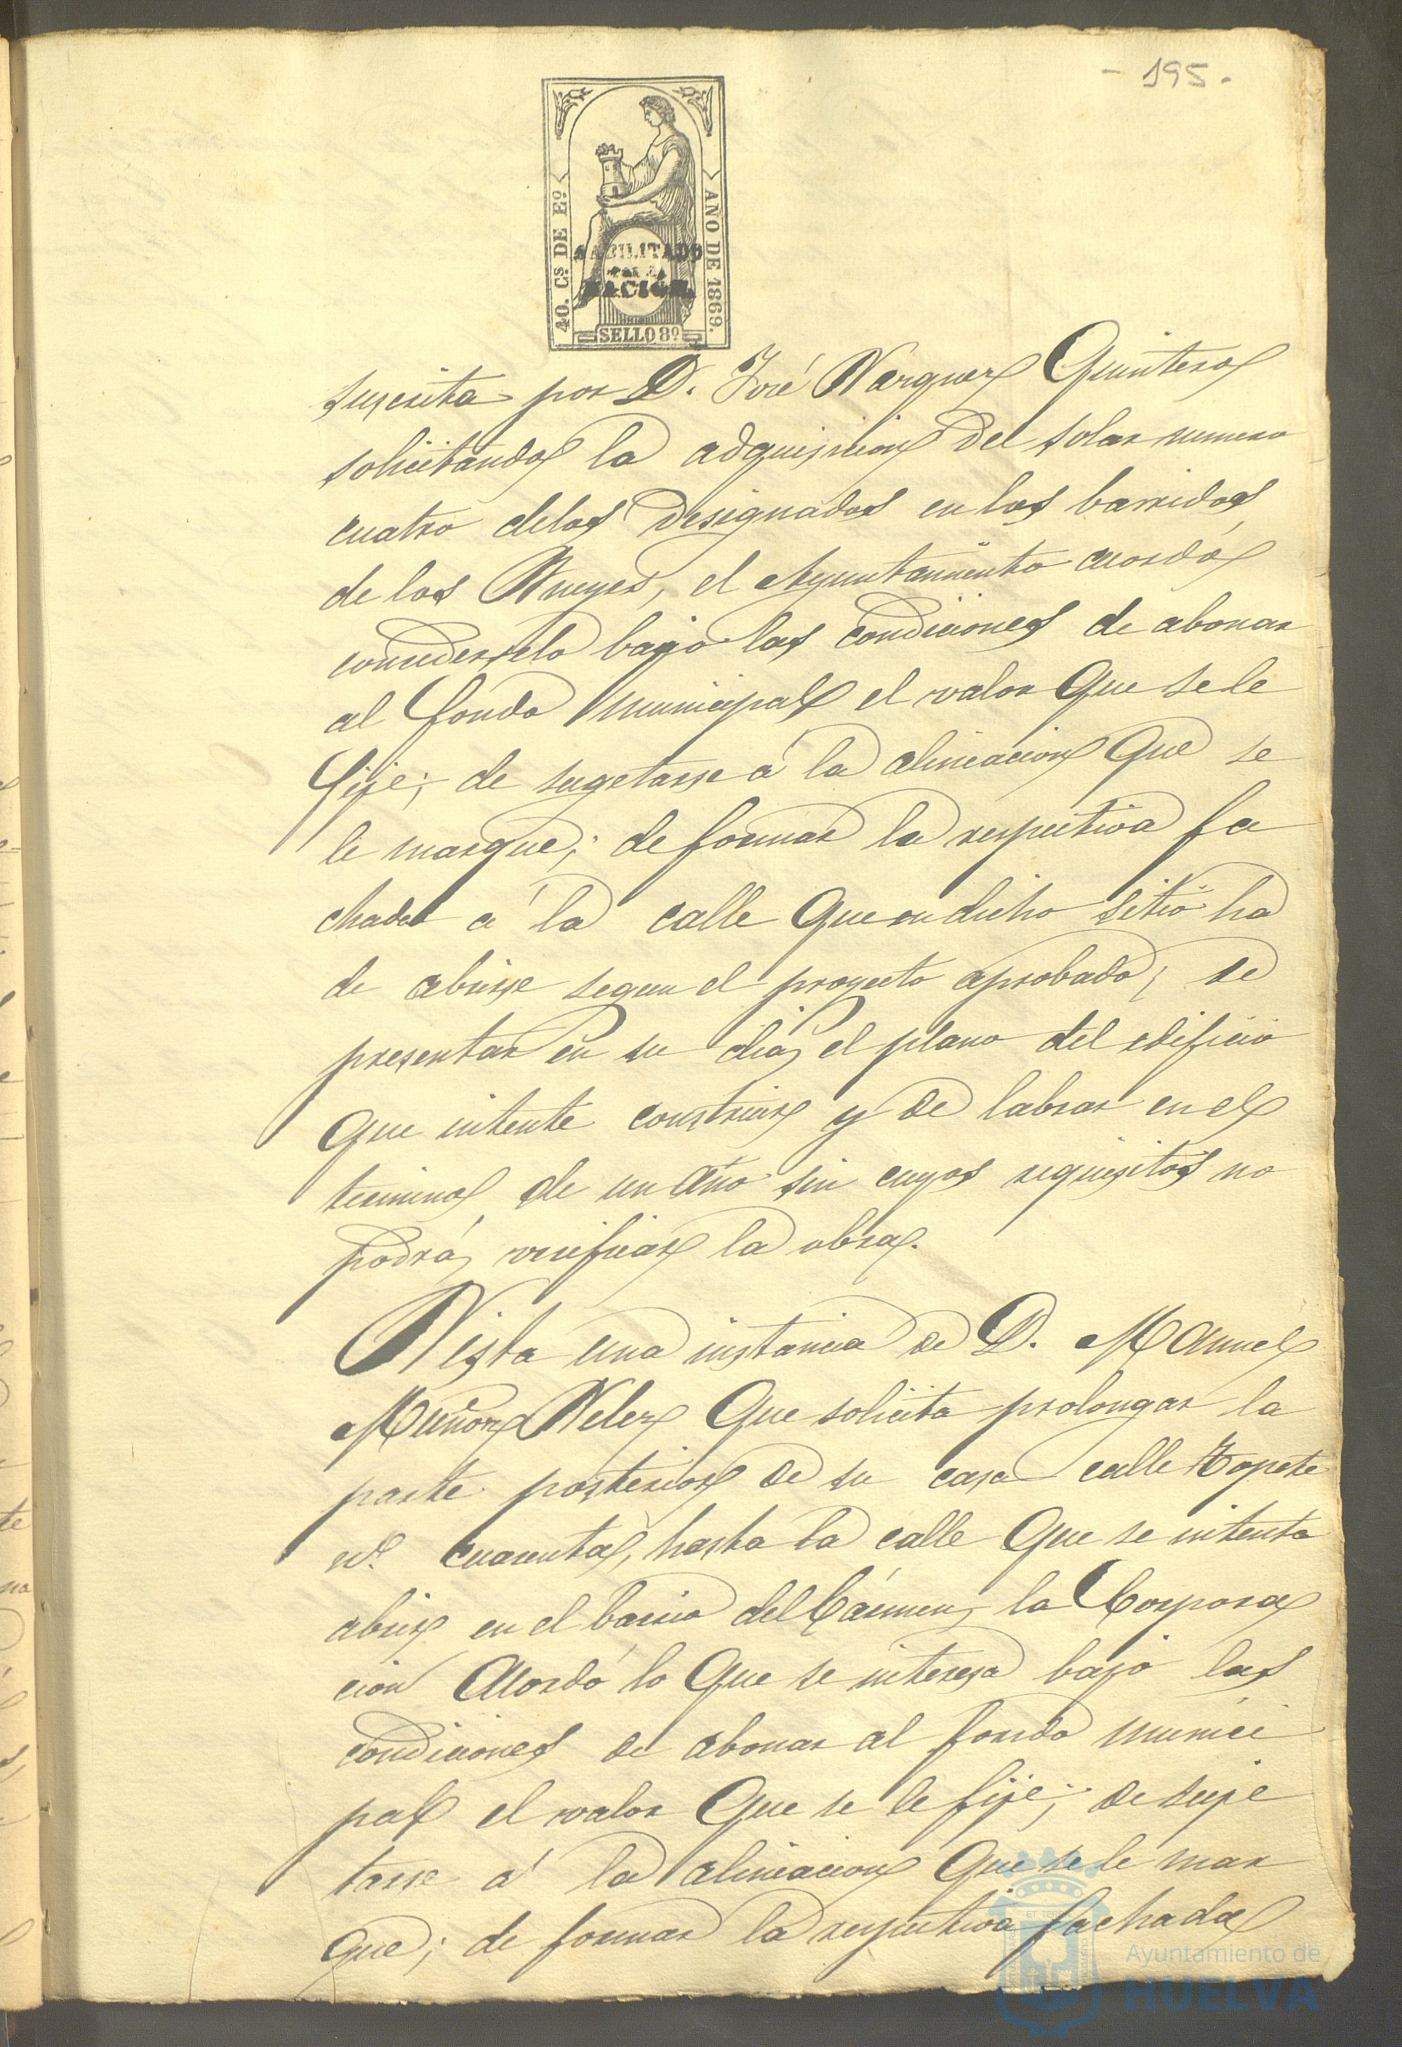 - 195 -
40. Cs DE Eo.
AÑO DE 1869.
HABILITADO
POR LA
NACION.
SELLO 8º
suscrita por D. José Vazquez Quintero
solicitando la adquisicion del solar numero
cuatro delos designados en los barridos
de los el Ayuntamiento acordó
concederselo bajo las condiciones de abonar
al fondo municipal el valor que se le
fije; de sugetarse á la alineacion que se
le marque; de formar la respectiva fa
chada á la calle que en dicho sitio ha
de abrirse segun el proyecto aprobado, de
presentar en su dia, el plano del edificio
que intente construir y de labrar en el
termino de un año sin cuyos requisitos no
podrá, verificar la obra.
Vista una instancia de D. Manuel
Muñoz Velez que solicita prolongar la
parte posterior de su casa calle Topete
nº cuarenta, hasta la calle que se intenta
abrir en el barrio del Cármen, la Corpora
cion acordó lo que se interesa bajo las
condiciones de abonar al fondo munici
pal el valor que se le fije; de suje
tarse á la alineacion que se le mar
que; de formar la respectiva fachada
Ayuntamiento de
HUELVA